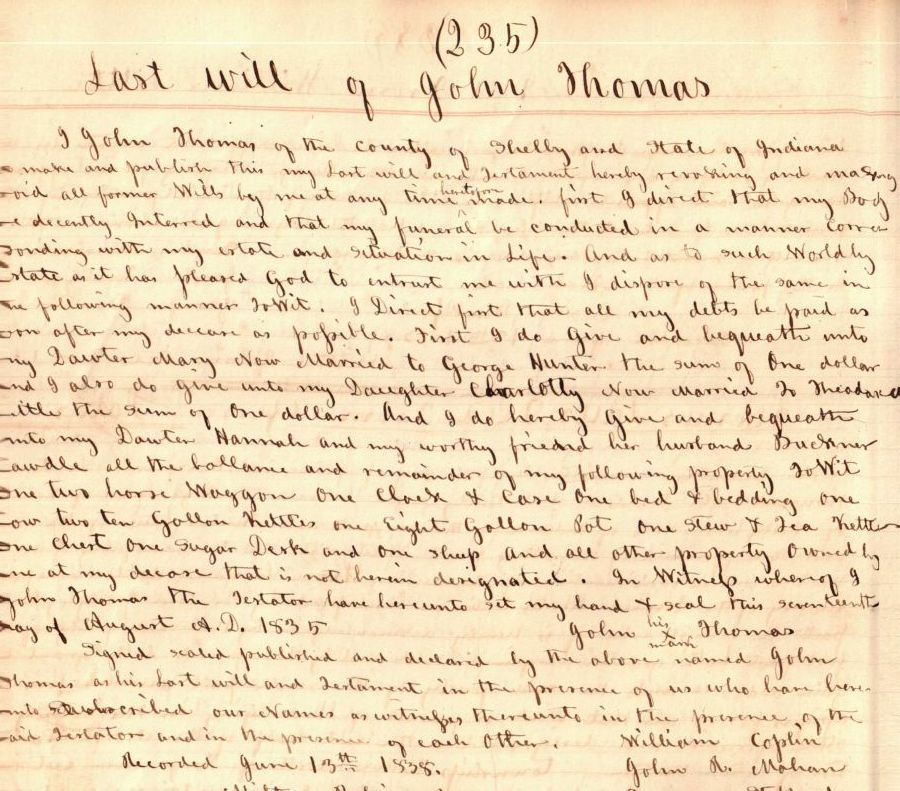 (235)
Last will of John Thomas
I John Thomas of the County of Shelby and State of Indiana
make and publish this my Last will and Testament hereby revoking and making
oid all former Wills by me at any time heretofore made. first I direct that my Body
e decently Interred and that my funeral be conducted in a manner Corres
ponding with my estate and situation in Life. And as to such Worldly
Estate as it has pleased God to entrust me with I dispose of the same in
he following manner ToWit. I Direct first that all my debts be paid as
oon after my decease as possible. First I do Give and bequeath unto
my Dawter Mary Now Married to George Hunter the sum of One dollar
nd I also do Give unto my Daughter Charlotty Now Married To
ittle the sum of One dollar. And I do hereby Give and bequeath
unto my Dawter Hannah and my worthy friend her husband Buckner
awdle all the ballance and remainder of my following property ToWit
One two horse Waggon One Clock & Case One bed & bedding one
Cow two ten Gallon Kettles one Eight Gallon Pot one Stew & Tea Kettle
One Chest One Sugar Desk and one sheep and all other property Owned by
me at my decase that is not herein designated. In Witness whereof I
John Thomas the Testator have hereunto set my hand & seal this seventeenth
Day of August A.D. 1835 John his X mark Thomas
Signed sealed published and declared by the above named John
Thomas as his Last will and Testament in the presence of us who have here
unto subscribed our Names as witnesses thereunto in the presence of the
aid Testator and in the presence of each Other. William Coplin
Recorded June 13th 1838. John R. Mohan